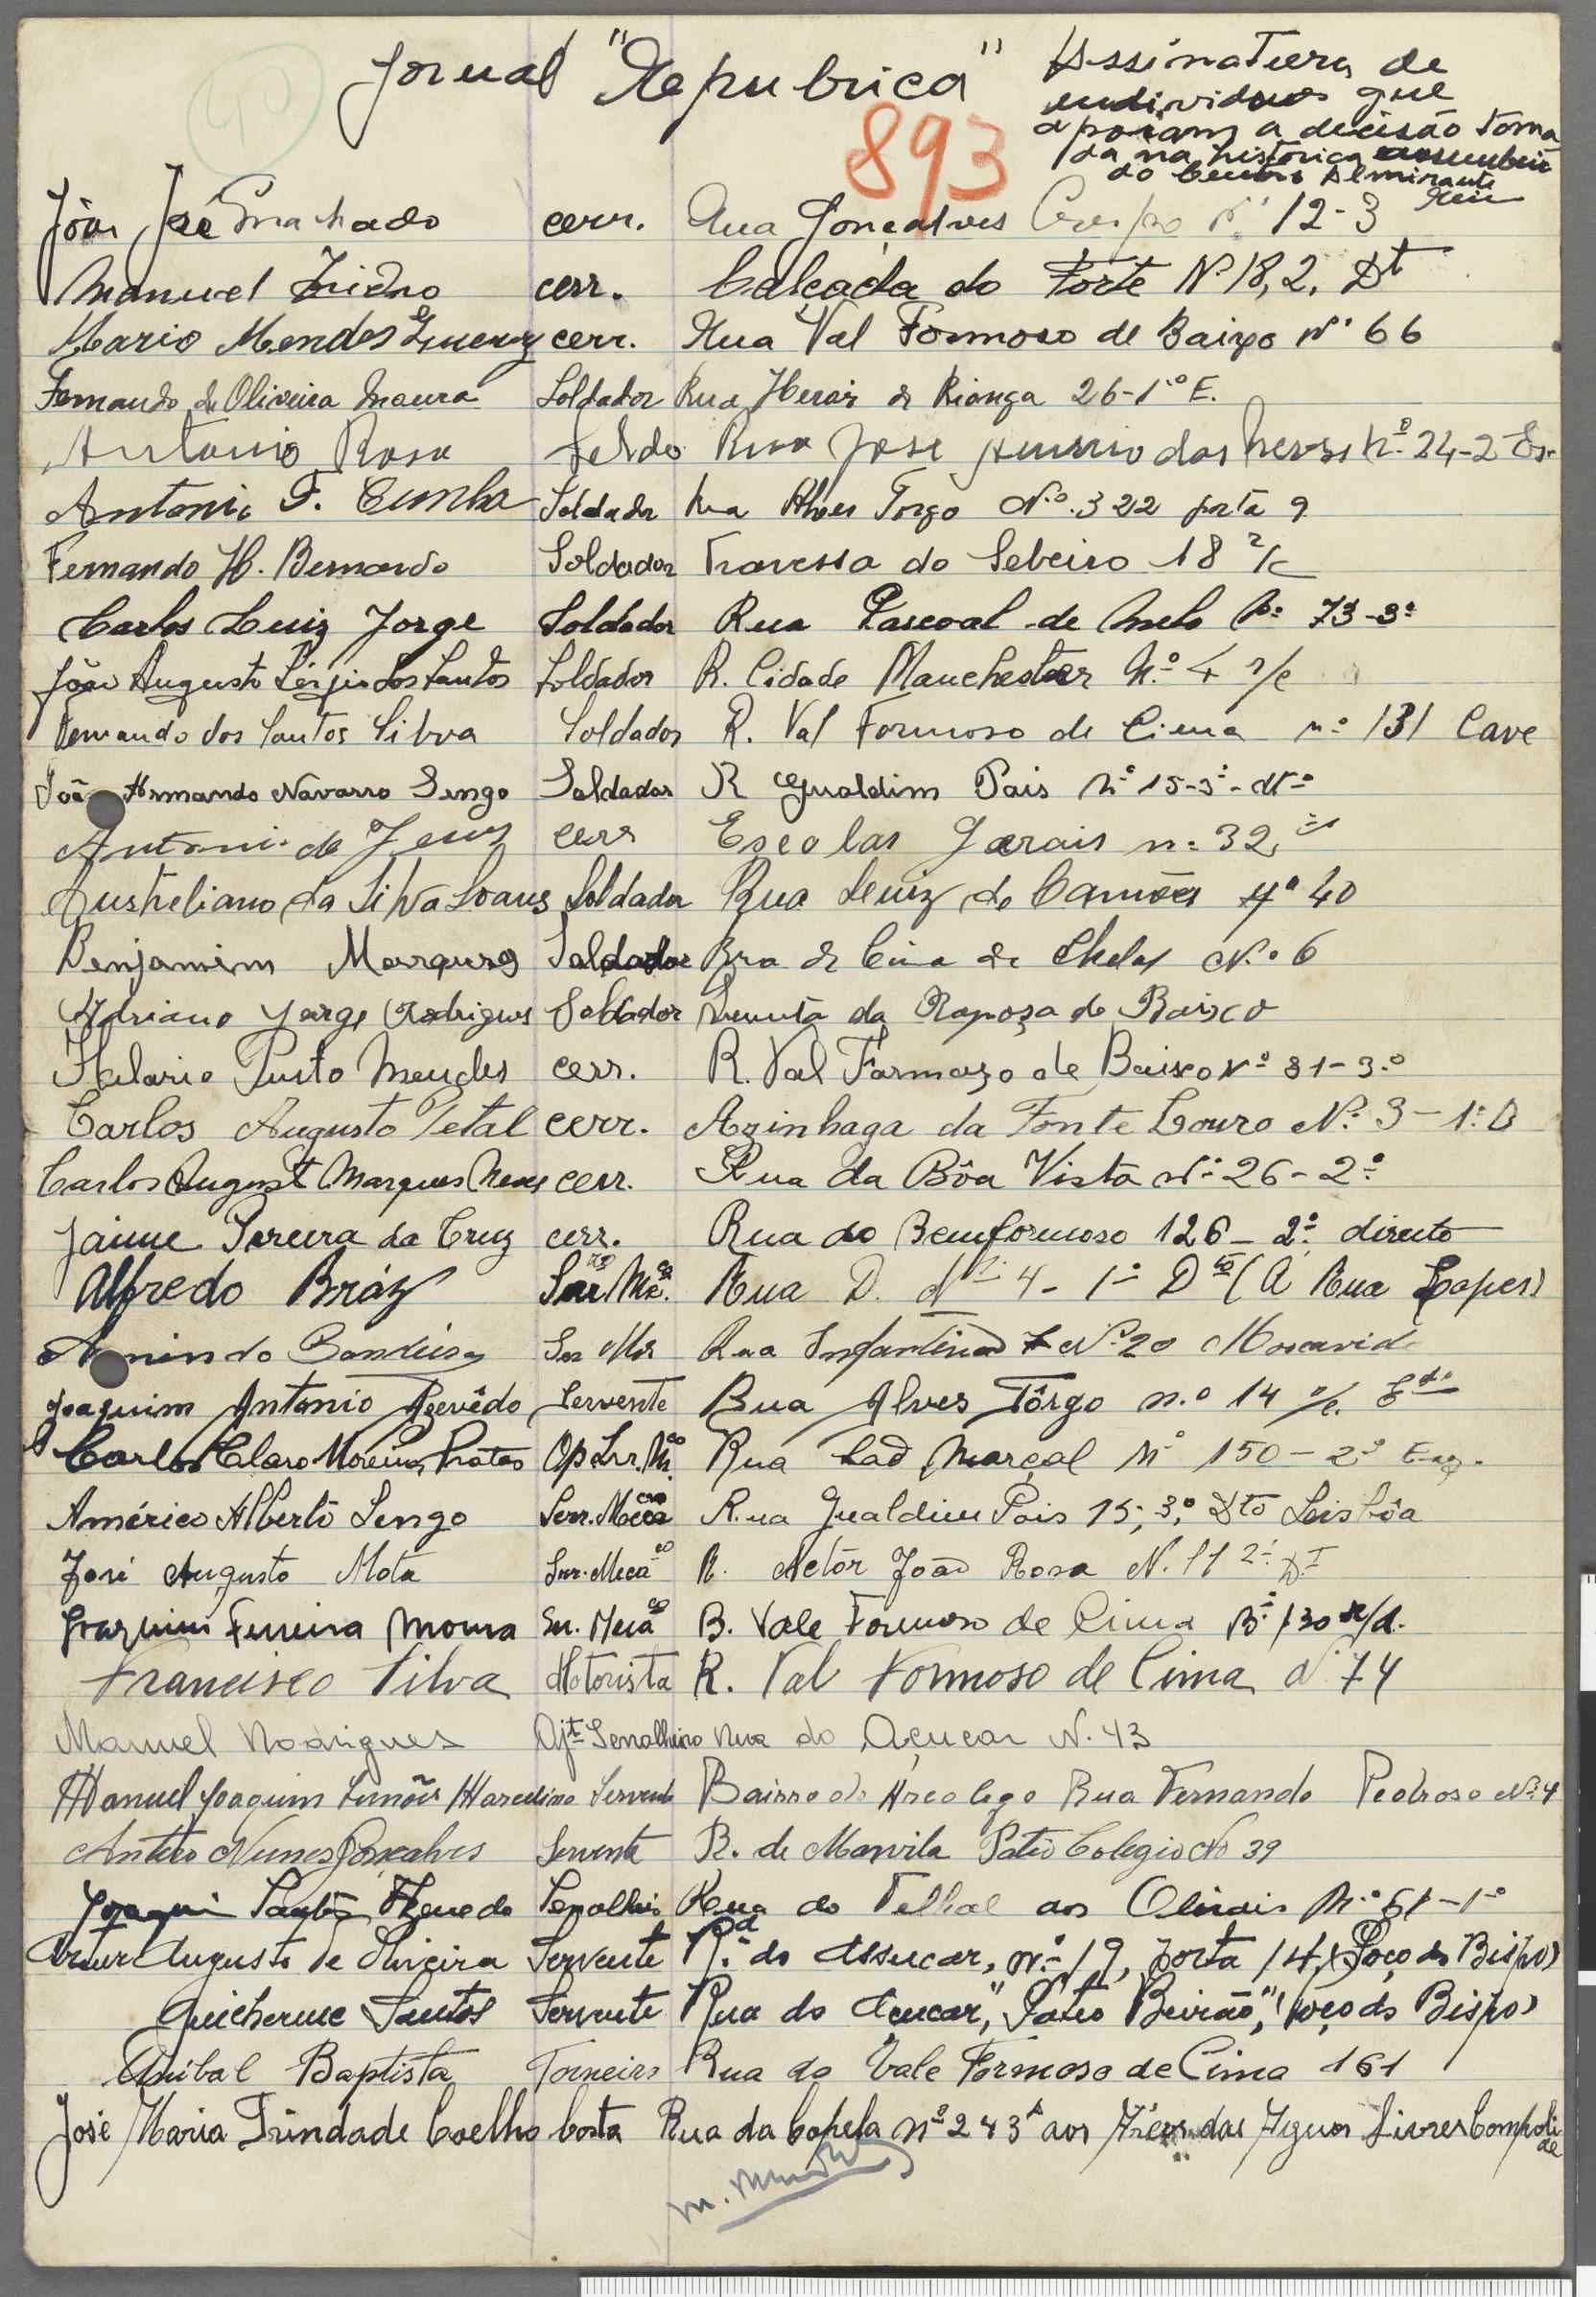 Jornal "Republica"
Assinatura de
individuos que
apoiam a decisão toma
da na historica
do Centro Almirante
Reis
893
João José Machado cerr. Rua Gonçalves Crespo Nº 12-3
Manuel cerr. Calçada do Forte Nº 18, 2. Dt
Mario Mendes cerr. Rua Val Formoso de Baixo Nº 66
Fernando de Oliveira Moura Soldador Rua de Kionga 26-1º E.
Antonio Rosa Soldo Rua Jose das Neves Nº 24-2
Antonio F. Cunha Soldador Rua Alves Torgo Nº. 322 porta 9
Fernando H. Bernardo Soldador Travessa do Sebeiro 18 r/c
Carlos Luiz Jorge Soldador Rua Pascoal de Melo Nº 73-3º
João Augusto Sérgio dos Santos Soldador R. Cidade Manchester N.º 4 r/c
Fernando dos Santos Silva Soldador R. Val Formoso de Cima nº 131 Cave
João Armando Navarro Sengo Soldador R Gualdim Pais Nº 15-3º-dtº
Antonio de Jesus cerr Escolas Gerais nº 32
da Silva Soares Soldador Rua Luiz de Camões nº 40
Benjamim Marques Soldador de Cima de Chelas Nº 6
Adriano Jorge Rodrigues Soldador Quinta da Raposa de Baixo
Justo Mendes cerr. R. Val Formozo de Baixo Nº 81-3.º
Carlos Augusto Petal cerr. Azinhaga da Fonte Louro Nº 3-1º D
Carlos August Marques Neves cerr. Rua da Bôa Vista Nº 26-2º
Jaime Pereira da Cruz cerr. Rua do Bemformoso 126-2º direito
Alfredo Bráz Rua D. Nº 4-1º Dto (A Rua Lopes)
Rua Infantina Nº 20 Moscavide
Joaquim Antonio Azevêdo Servente Rua Alves Tôrgo n.º 14 r/c.
Carlos Claro Moreira Prates Op. Ser. Mco Rua Lad Marçal Nº 150-2º Esq.
Américo Alberto Sengo Serr. Meca Rua Gualdim Pais 15, 3º, Dto Lisbôa
José Augusto Mota Ser. Meca R. Actôr João Rosa N. 11 2º Dt
Joaquim Ferreira Moura Ser. Meca R. Vale Formoso de Cima Nº 130
Francisco Silva Motorista R. Val Formoso de Cima Nº 74
Manuel Rodrigues Ajt Serralheiro Rua do Açucar N. 43
Manuel Joaquim Simões Marcelino Servente Bairro do Arco Cego Rua Fernando Pedroso Nº 4
Antero Nunes Gonçalves Servente R. de Marvila Patio Colegio Nº 39
Joaquim Santos Serralheiro Rua do Telhal aos Olivais Nº 61-1º
Artur Augusto de Oliveira Servente R. do Assucar, nº 19, porta 14, (Poço do Bispo)
Guilherme Santos Servente Rua do Açucar, "Patio Beirão", (Poço do Bispo)
Anibal Baptista Torneiro Rua do Vale Formoso de Cima 161
José Maria Trindade Coelho Costa Rua da Capela nº 243 A aos Arcos das Aguas Livres Campolide